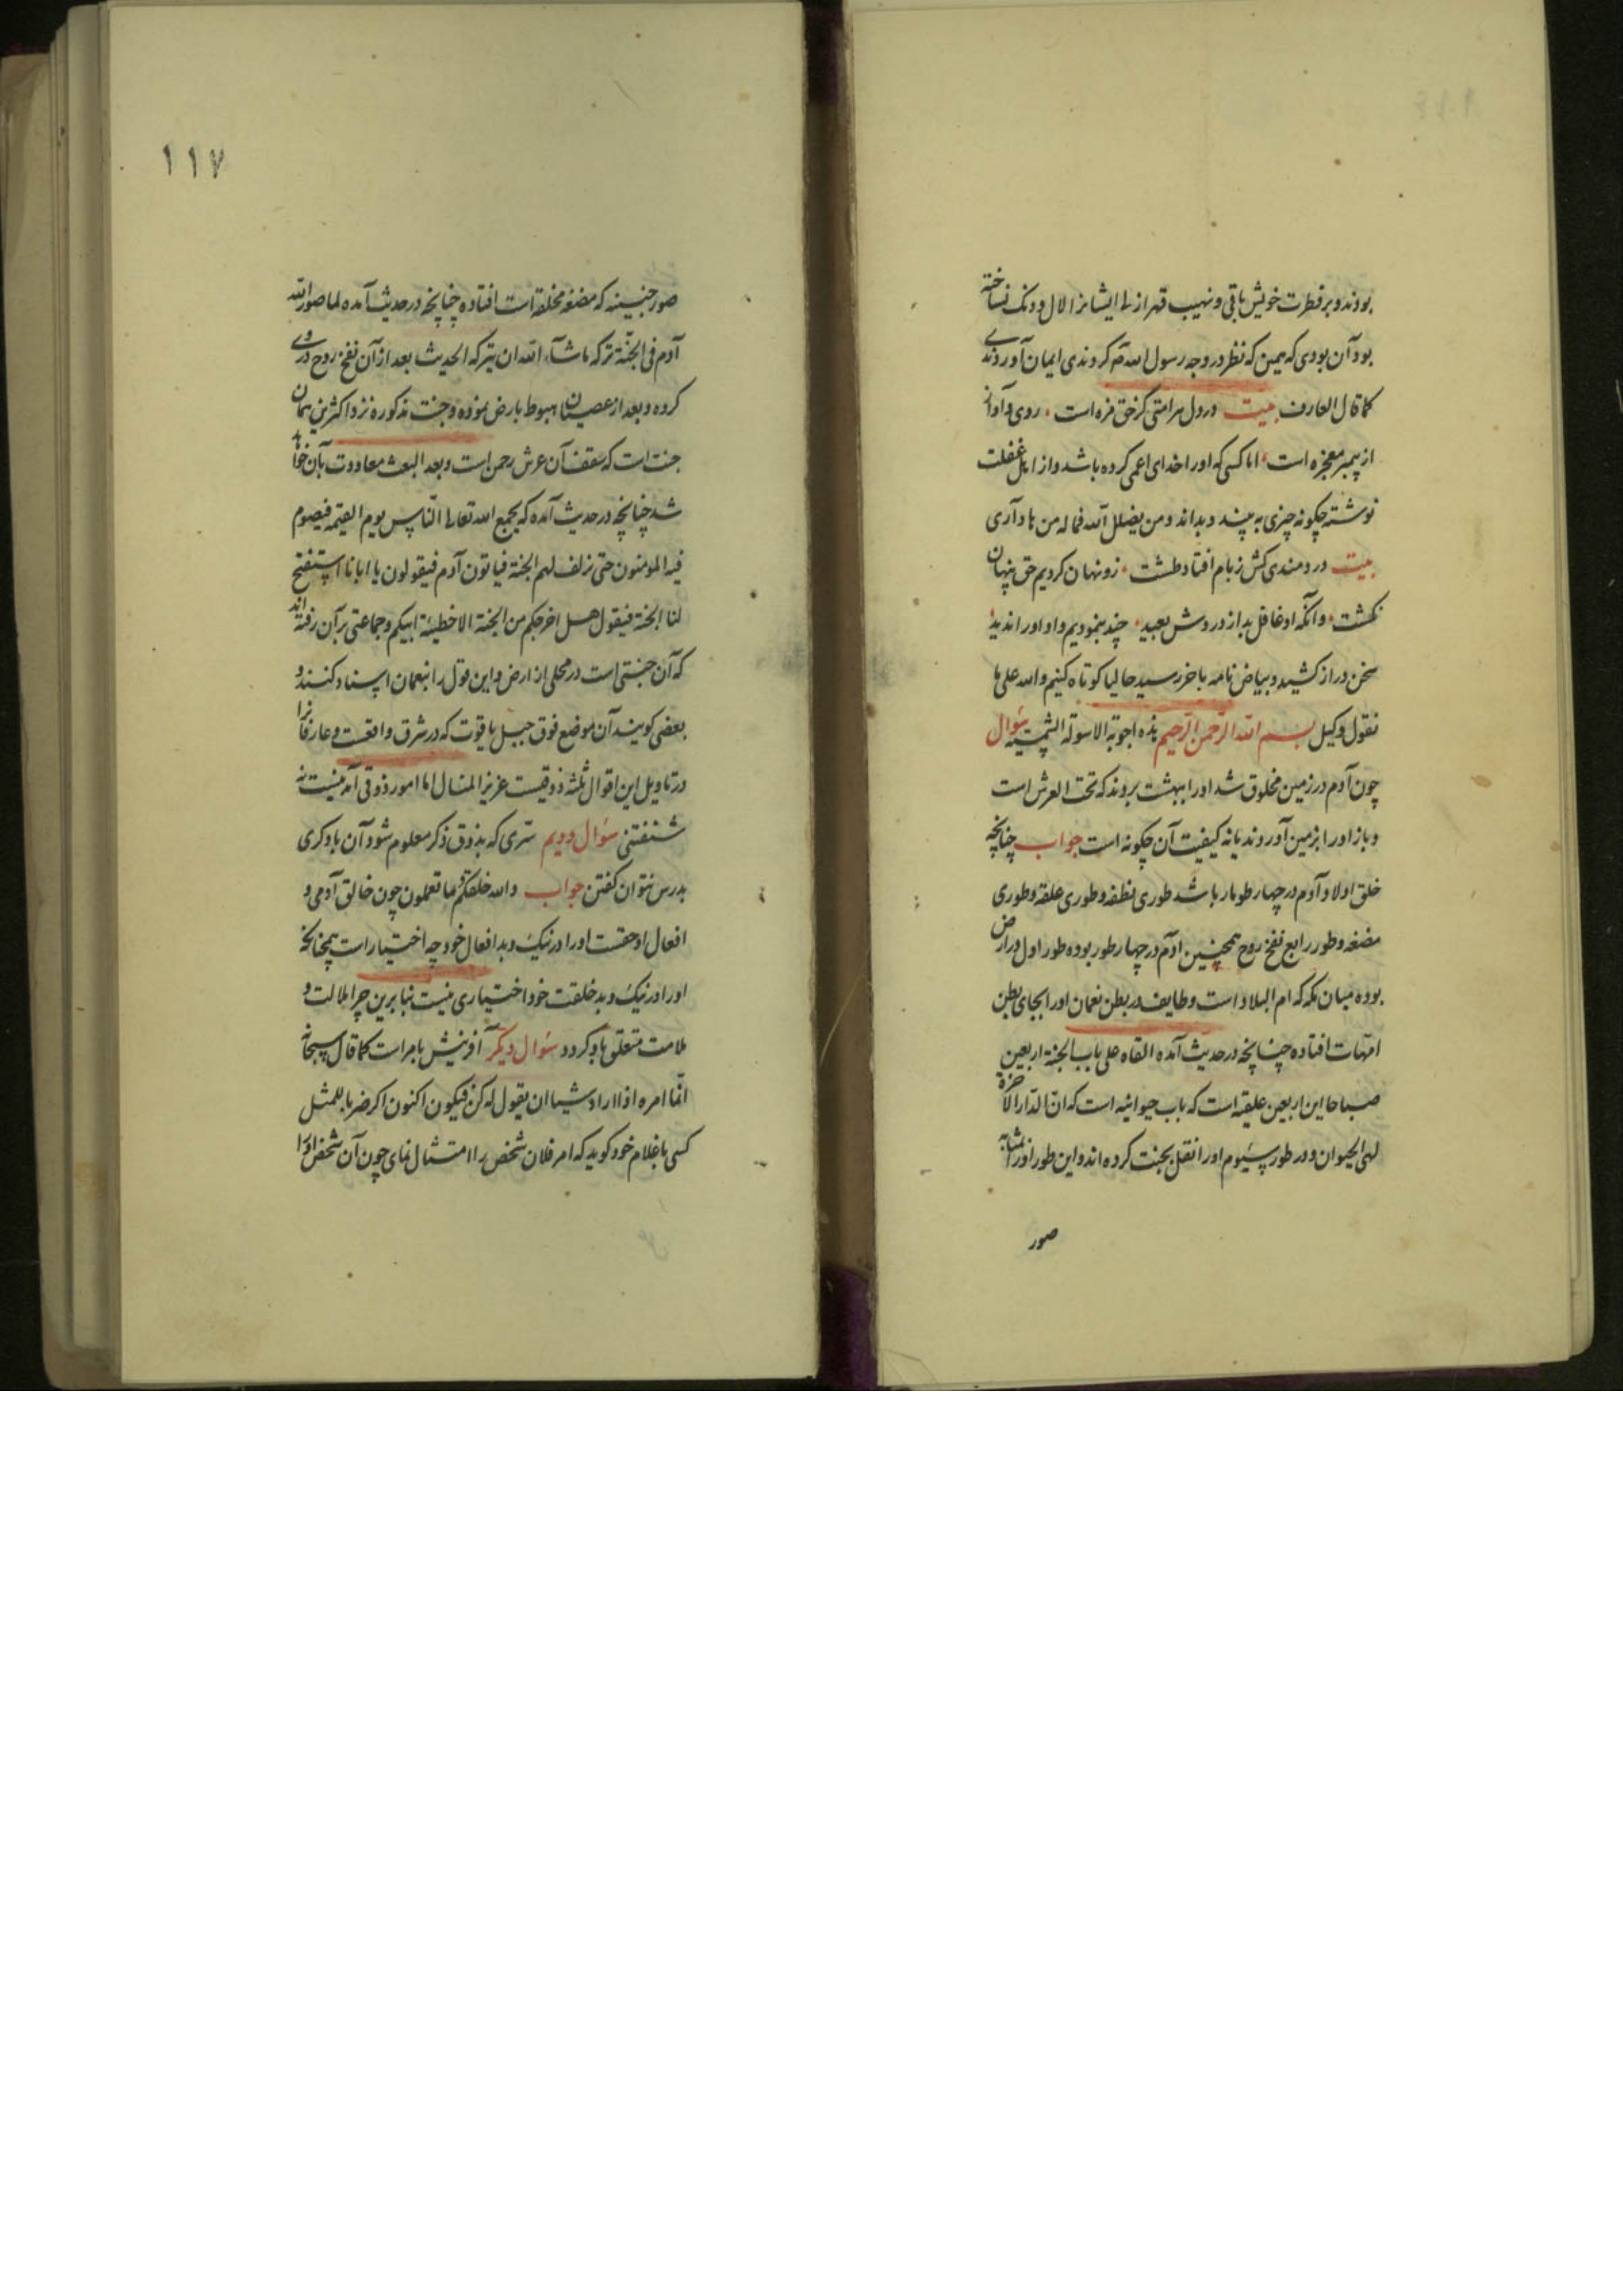 بودند و بر فطرت خویش باقی و نهیب قهر ازلی ایشانرا لال و دنک نساخته
بود آن بودی که بهمین که نظر در وجه رسول الله صم کردندی ایمان آوردندی
کما قال العارف بیت در دل هر امتی کز حق مزه است روی و آواز
از پیمبر معجزه است اما کسی که او را خدای اعمی کرده باشد و از اهل غفلت
نوشته چکونه چیزی به بیند و بداند و من یضلل الله فماله من هاد آری
بیت دردمندی کش ز بام افتاد طشت زو نهان کردیم حق پنهان
نکشت وانکه او غافل بد از دردش بعید چند بنمودیم و او اورا ندید
سخن دراز کشید و بیاض نامه باخر رسید حالیا کوتاه کنیم والله علی ما
نقول وکیل بسم الله الرحمن الرحیم هذه اجوبة الاسولة سؤال
چون آدم در زمین مخلوق شد اورا ببهشت بردند که تحت العرش است
و باز اورا بزمین آوردند یا نه کیفیت آن چکونه است جواب چنانچه
خلق اولاد آدم در چهار طومار باشد طوری نطفه و طوری علقه و طوری
مضغه و طور رابع نفخ روح همچنین آدم در چهار طور بوده طور اول در ارض
بوده میان مکه که ام البلاد است و طایف در بطن نعمان اورا بجای بطن
امهات افتاده چنانچه در حدیث آمده القاه علی باب الجنة اربعین
صباحا این اربعین علقیه است که باب حیوانیه است که ان الدار الآخرة
لهی الحیوان و در طور سیوم اورا نقل بجنت کرده اند و این طور اورا بمثابه
صور
١١٧
صور جنینیه که مضغه مخلقه است افتاده چنانچه در حدیث آمده لما صور الله
آدم فی الجنة ترکه ما شآء الله ان یترکه الحدیث بعد از آن نفخ روح در وی
کرده و بعد از عصیان هبوط بارض نموده و جنت مذکوره نزد اکثرین همان
جنت است که سقف آن عرش رحمن است و بعد البعث معاودت بآن خواهد
شد چنانچه در حدیث آمده که یجمع الله تعالی الناس یوم القیمه فیصوم
فیه المومنون حتی تزلف لهم الجنة فیاتون آدم فیقولون یا ابانا استفتح
لنا الجنة فیقول هل اخرجکم من الجنة الا خطیئة ابیکم و جماعتی بر آن رفته اند
که آن جنتی است در محلی از ارض و این قول را بنعمان اسناد کنند و
بعضی کویند آن موضع فوق جبل یاقوت که در شرق واقعست و عارفانرا
در تاویل این اقوال ثلثه ذوقیست عزیز المنال اما امور ذوقی آمدنیست نه
شنفتنی سؤال دویم سری که بذوق ذکر معلوم شود آن با دکری
بدرس نتوان کفتن جواب والله خلقکم و ما تعملون چون خالق آدمی و
افعال او حقست اورا در نیک و بد افعال خود چه اختیار است همچنانکه
اورا در نیک و بد خلقت خود اختیاری نیست بنابرین چرا ملالت و
ملامت متعلق باو کردد سؤال دیکر آفرینش بامر است کما قال سبحانه
انما امره اذا اراد شیا ان یقول له کن فیکون اکنون اکر ضربا للمثل
کسی با غلام خود کوید که امر فلان شخص را امتثال نمای چون آن شخص اورا